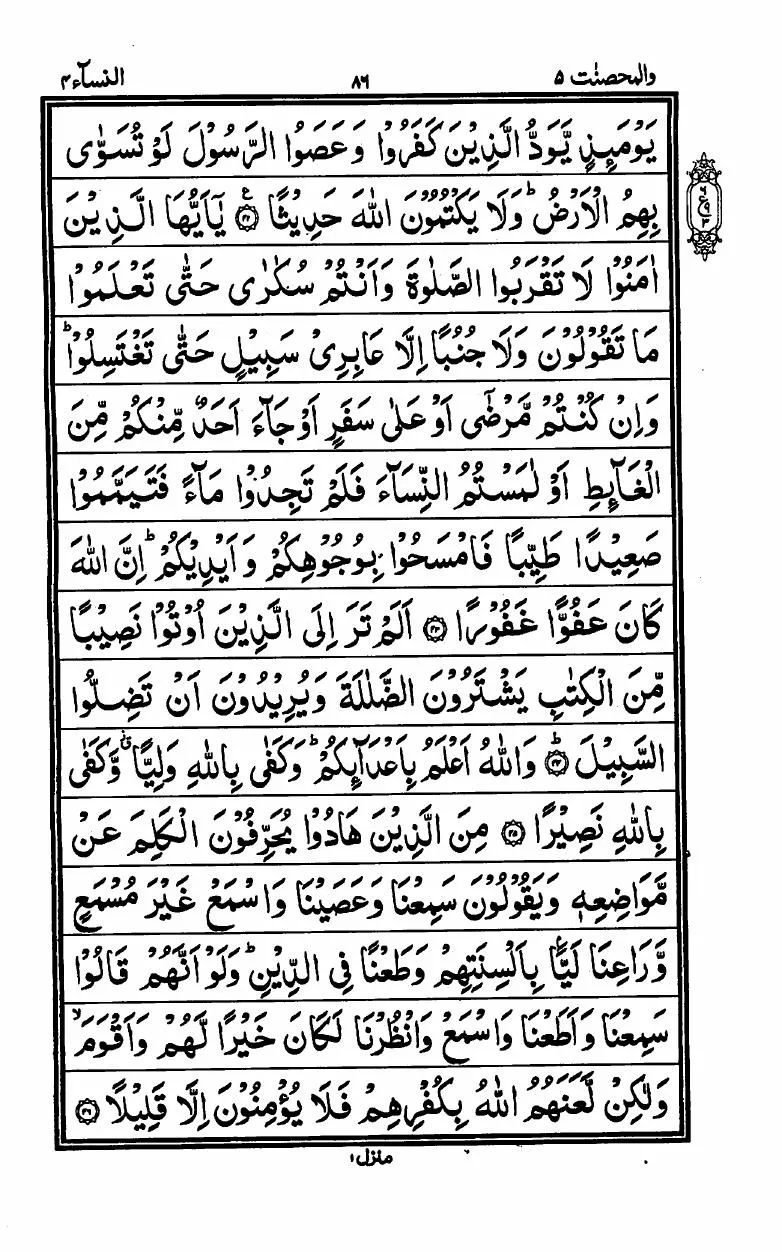 والمحصنت ۵ ۸۶ النسآء ۴
يَوْمَئِذٍ يَّوَدُّ الَّذِيْنَ كَفَرُوْا وَعَصَوُا الرَّسُوْلَ لَوْ تُسَوّٰى
بِهِمُ الْاَرْضُ ؕ وَلَا يَكْتُمُوْنَ اللّٰهَ حَدِيْثًا ﴿۴۲﴾ ع يٰۤاَيُّهَا الَّذِيْنَ
اٰمَنُوْا لَا تَقْرَبُوا الصَّلٰوةَ وَاَنْتُمْ سُكٰرٰى حَتّٰى تَعْلَمُوْا
مَا تَقُوْلُوْنَ وَلَا جُنُبًا اِلَّا عَابِرِيْ سَبِيْلٍ حَتّٰى تَغْتَسِلُوْا ؕ
وَاِنْ كُنْتُمْ مَّرْضٰۤى اَوْ عَلٰى سَفَرٍ اَوْ جَآءَ اَحَدٌ مِّنْكُمْ مِّنَ
الْغَآئِطِ اَوْ لٰمَسْتُمُ النِّسَآءَ فَلَمْ تَجِدُوْا مَآءً فَتَيَمَّمُوْا
صَعِيْدًا طَيِّبًا فَامْسَحُوْا بِوُجُوْهِكُمْ وَاَيْدِيْكُمْ ؕ اِنَّ اللّٰهَ
كَانَ عَفُوًّا غَفُوْرًا ﴿۴۳﴾ اَلَمْ تَرَ اِلَى الَّذِيْنَ اُوْتُوْا نَصِيْبًا
مِّنَ الْكِتٰبِ يَشْتَرُوْنَ الضَّلٰلَةَ وَيُرِيْدُوْنَ اَنْ تَضِلُّوا
السَّبِيْلَ ؕ ﴿۴۴﴾ وَاللّٰهُ اَعْلَمُ بِاَعْدَآئِكُمْ ؕ وَكَفٰى بِاللّٰهِ وَلِيًّا ۙ٘ وَّكَفٰى
بِاللّٰهِ نَصِيْرًا ﴿۴۵﴾ مِنَ الَّذِيْنَ هَادُوْا يُحَرِّفُوْنَ الْكَلِمَ عَنْ
مَّوَاضِعِهٖ وَيَقُوْلُوْنَ سَمِعْنَا وَعَصَيْنَا وَاسْمَعْ غَيْرَ مُسْمَعٍ
وَّرَاعِنَا لَيًّۢا بِاَلْسِنَتِهِمْ وَطَعْنًا فِي الدِّيْنِ ؕ وَلَوْ اَنَّهُمْ قَالُوْا
سَمِعْنَا وَاَطَعْنَا وَاسْمَعْ وَانْظُرْنَا لَكَانَ خَيْرًا لَّهُمْ وَاَقْوَمَ ۙ
وَلٰكِنْ لَّعَنَهُمُ اللّٰهُ بِكُفْرِهِمْ فَلَا يُؤْمِنُوْنَ اِلَّا قَلِيْلًا ﴿۴۶﴾
منزل ۱